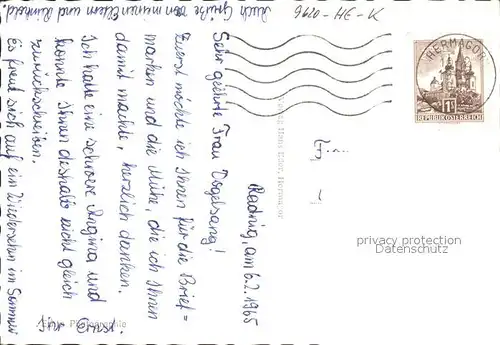 Radnig, am 6.2.1965
Sehr geehrte Frau Vogelsang!
Zuerst möchte ich Ihnen für die Brief=
marken und die Mühe, die ich Ihnen
damit machte, herzlich danken.
Ich hatte eine schwere Angina und
konnte Ihnen deshalb nicht gleich
zurückschreiben.
Es freut sich auf ein Wiedersehen im Sommer
Ihr Ernst.
Auch Grüße von meinen Eltern und Reinhold
K-HE-0796
HERMAGOR
1S
REPUBLIK ÖSTERREICH
Hermagor
Frau
privacy protection
Datenschutz